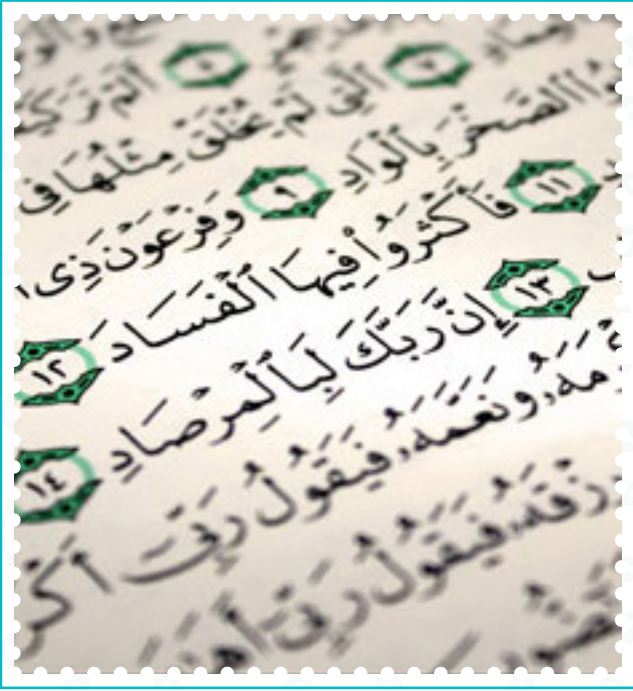 أَلَمْ تَرَ
ٱلَّتِى لَمْ يُخْلَقْ مِثْلُهَا فِى
ٱلصَّخْرَ بِٱلْوَادِ ٩ وَفِرْعَوْنَ ذِى
١١ فَأَكْثَرُوا۟ فِيهَا ٱلْفَسَادَ ١٢
١٣ إِنَّ رَبَّكَ لَبِٱلْمِرْصَادِ ١٤
وَنَعَّمَهُۥ فَيَقُولُ رَبِّىٓ
رِزْقَهُۥ فَيَقُولُ رَبِّىٓ